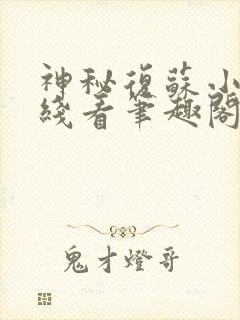 神秘復蘇小
綫看筆趣閣
鬼才燈哥